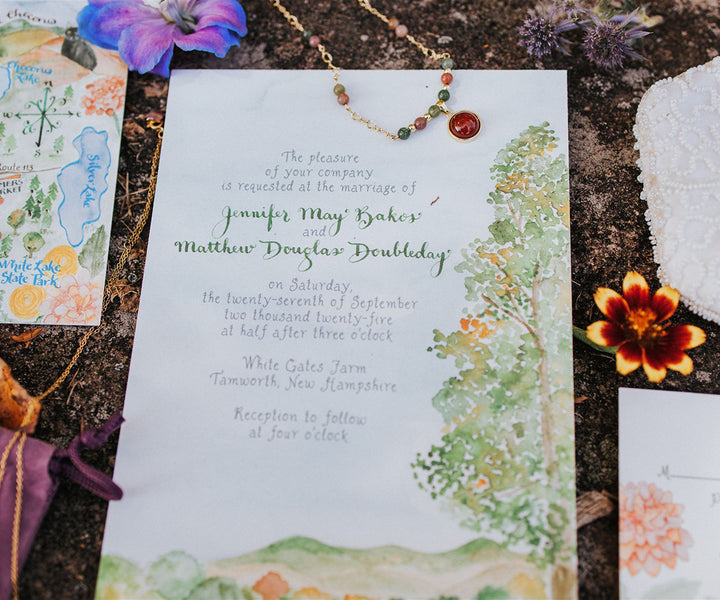 Chocorua
Chocorua
Lake
W
E
Route 113
MERS
ARKET
Silver Lake
White Lake
State Park
The pleasure
of your company
is requested at the marriage of
Jennifer May Bakos
and
Matthew Douglas Doubleday
on Saturday,
the twenty-seventh of September
two thousand twenty-five
at half after three o'clock
White Gates Farm
Tamworth, New Hampshire
Reception to follow
at four o'clock
M